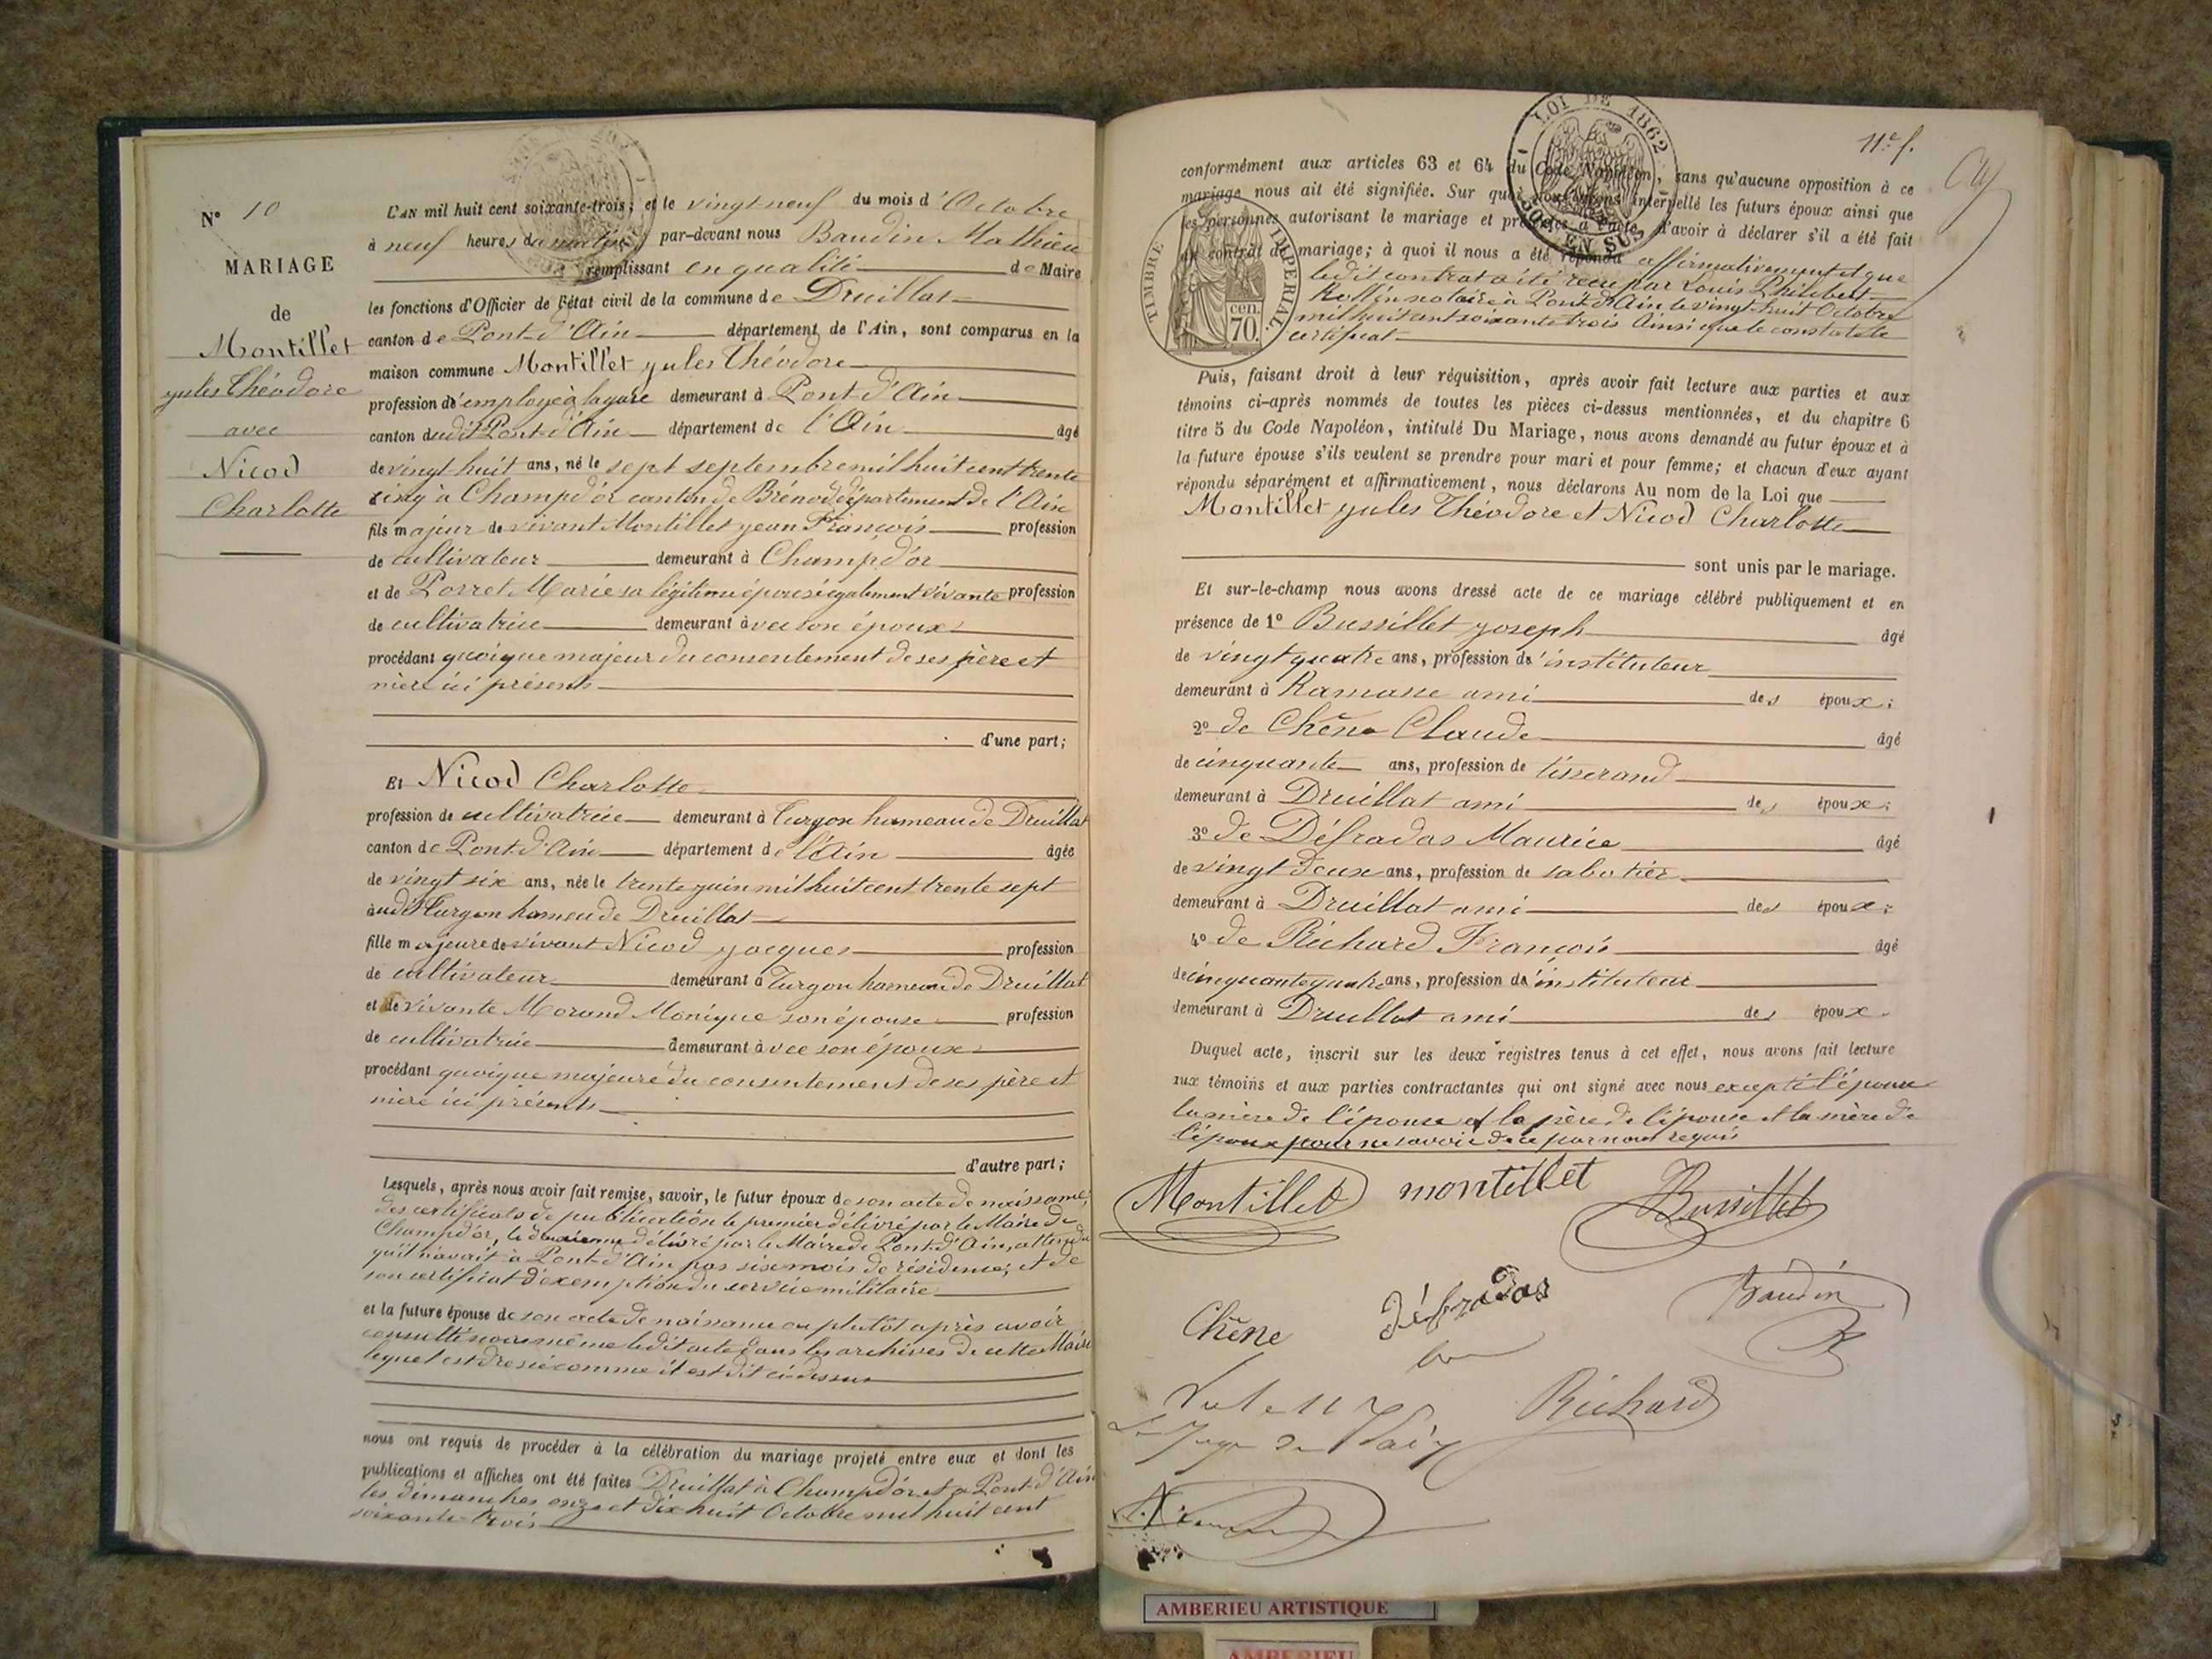 Nº 10
MARIAGE
de
Montillet
jules théodore
avec
Nicod
Charlotte
L'AN mil huit cent soixante-trois; et le vingt-neuf du mois d'Octobre
à neuf heures du matin par-devant nous Baudin Mathieu
remplissant en qualité de Maire
les fonctions d'Officier de l'état civil de la commune de Druillat
canton de Pont-d'Ain département de l'Ain, sont comparus en la
maison commune Montillet jules théodore
profession d'employé à la gare demeurant à Pont d'Ain
canton dudit Pont-d'Ain département de l'Ain âgé
de vingt huit ans, né le sept septembre mil huit cent trente
cinq à Champd'or canton de Brénod département de l'Ain
fils majeur de vivant Montillet jean François profession
de cultivateur demeurant à Champd'or
et de Porret Marie sa légitime épouse également vivante profession
de cultivatrice demeurant avec son époux
procédant quoique majeur du consentement de ses père et
mère ici présents
d'une part;
Et Nicod Charlotte
profession de cultivatrice demeurant à Turgon hameau de Druillat
canton de Pont-d'Ain département de l'Ain âgée
de vingt six ans, née le trente juin mil huit cent trente sept
audit Turgon hameau de Druillat
fille majeure de vivant Nicod jacques profession
de cultivateur demeurant à Turgon hameau de Druillat
et de vivante Morand Monique son épouse profession
de cultivatrice demeurant avec son époux
procédant quoique majeure du consentement de ses père et
mère ici présents
d'autre part;
Lesquels, après nous avoir fait remise, savoir, le futur époux de son acte de naissance,
des certificats de publication le premier délivré par le Maire de
Champd'or, le deuxieme délivré par le Maire de Pont-d'Ain, attendu
qu'il n'avait à Pont-d'Ain pas six mois de résidence; et de
son certificat d'exemption du service militaire
et la future épouse de son acte de naissance ou plutôt après avoir
consulté nous même ledit acte dans les archives de cette Mairie
lequel est dressé comme il est dit ci-dessus
nous ont requis de procéder à la célébration du mariage projeté entre eux et dont les
publications et affiches ont été faites Druillat à Champd'or et à Pont-d'Ain
les dimanches onze et dix huit Octobre mil huit cent
soixante-trois
11e f.
LOI DE 1862
50 EN SUS
TIMBRE IMPERIAL
cen.
70.
conformément aux articles 63 et 64 du Code Napoléon, sans qu'aucune opposition à ce
mariage nous ait été signifiée. Sur quoi, nous avons interpellé les futurs époux ainsi que
les personnes autorisant le mariage et présentes à l'acte, d'avoir à déclarer s'il a été fait
un contrat de mariage; à quoi il nous a été répondu affirmativement et que
ledit contrat a été reçu par Louis Philibert
notaire à Pont-d'Ain le vingt-huit Octobre
mil huit cent soixante trois Ainsi que le constate le
certificat
Puis, faisant droit à leur réquisition, après avoir fait lecture aux parties et aux
témoins ci-après nommés de toutes les pièces ci-dessus mentionnées, et du chapitre 6
titre 5 du Code Napoléon, intitulé Du Mariage, nous avons demandé au futur époux et à
la future épouse s'ils veulent se prendre pour mari et pour femme; et chacun d'eux ayant
répondu séparément et affirmativement, nous déclarons Au nom de la Loi que
Montillet jules Théodore et Nicod Charlotte
sont unis par le mariage.
Et sur-le-champ nous avons dressé acte de ce mariage célébré publiquement et en
présence de 1º Bussillet joseph âgé
de vingt quatre ans, profession d'instituteur
demeurant à Ramasse ami des époux;
2º de Chêne Claude âgé
de cinquante ans, profession de tisserand
demeurant à Druillat ami des époux;
3º de Défradas Maurice âgé
de vingt deux ans, profession de sabotier
demeurant à Druillat ami des époux;
4º de Richard François âgé
de cinquante quatre ans, profession d'instituteur
demeurant à Druillat ami des époux
Duquel acte, inscrit sur les deux registres tenus à cet effet, nous avons fait lecture
aux témoins et aux parties contractantes qui ont signé avec nous excepté l'épouse
la mère de l'épouse et le père de l'épouse et la mère de
l'époux pour ne savoir de ce par nous requis
Montillet montillet Bussillet
Chêne défradas Baudin
Richard
Le Juge de Paix
AMBERIEU ARTISTIQUE
AMBERIEU